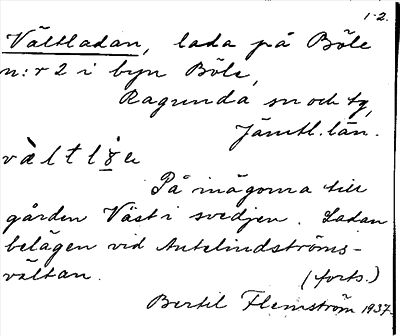 1.2.
Vältladan, lada på Böle
n:r 2 i byn Böle,
Ragunda sn och tg,
Jämtl. län.
På inägorna till
gården Väst i svedjen. Ladan
belägen vid Antelindströms-
vältan. (forts.)
Bertil Flemström 1937.